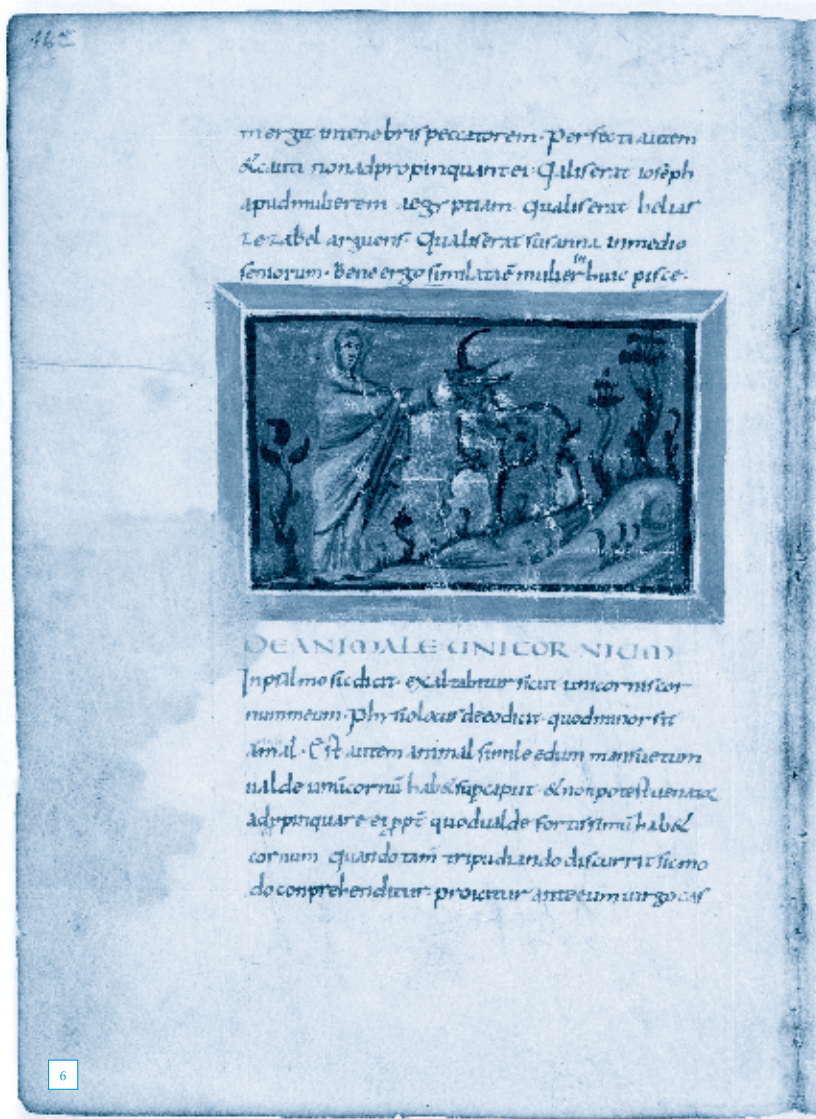 mergit in tenebris peccatorem · Perfecti autem
& cauti non adpropinquant ei · Qaliserat ioseph
apud mulierem aegyptiam · Qualiserat helias
Iezabel arguens · Qualiserat susanna in medio
seniorum · Bene ergo similata ē mulier huic pisce ·
DE ANIMALE UNICORNIUM
In psalmo sic dicit · exaltabitur sicut unicornis cor
num meum · Phisiolocus de eo dicit · quod minor sit
amal · Est autem animal simile edum mansuetum
ualde unicornū hab& sup caput · & non potest uenator
adppinquare ei ppt̄ quod ualde fortissimū hab&
cornum quando tam̄ tripudiando discurrit sic mo
do conprehenditur · proicitur ante eum uirgo cas
6